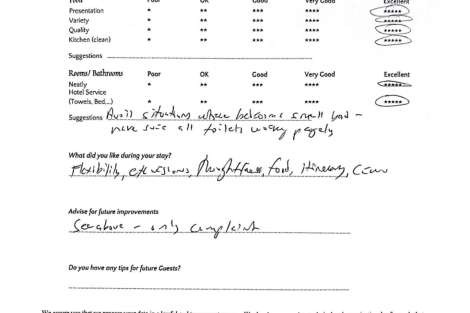 Food Poor OK Good Very Good Excellent
Presentation * ** *** **** *****
Variety * ** *** **** *****
Quality * ** *** **** *****
Kitchen (clean) * ** *** **** *****
Suggestions
Rooms/ Bathrooms Poor OK Good Very Good Excellent
Neatly * ** *** **** *****
Hotel Service
(Towels, Bed,...) * ** *** **** *****
Suggestions Avoid situations where small bad -
make sure all toilets working properly
What did you like during your stay?
Flexibility, excursions, thoughtfulness, food, itinerary, crew
Advise for future improvements
See above - only complaint
Do you have any tips for future Guests?